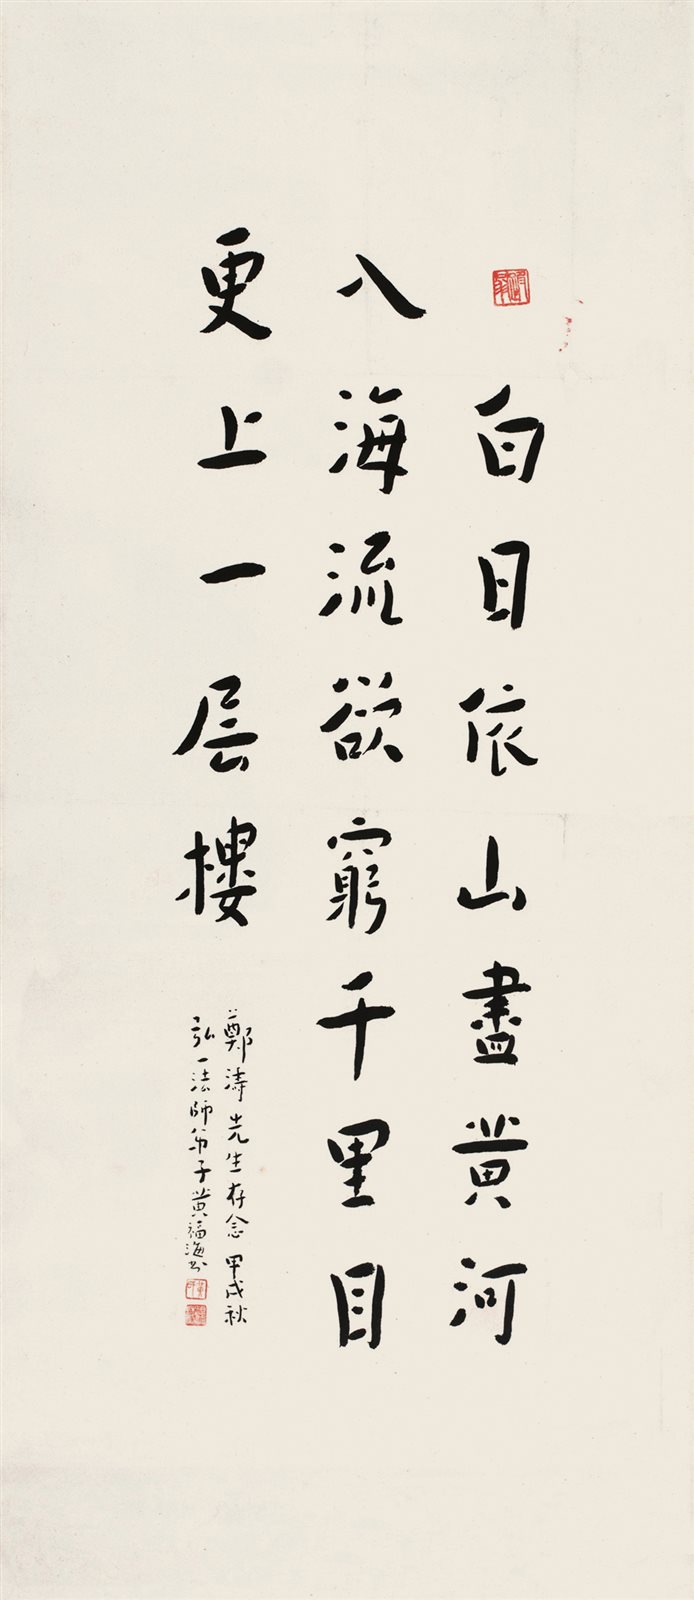 白日依山盡黄河
入海流欲窮千里目
更上一层樓
鄭濤先生存念 甲戌秋
弘一法師弟子黄福海书